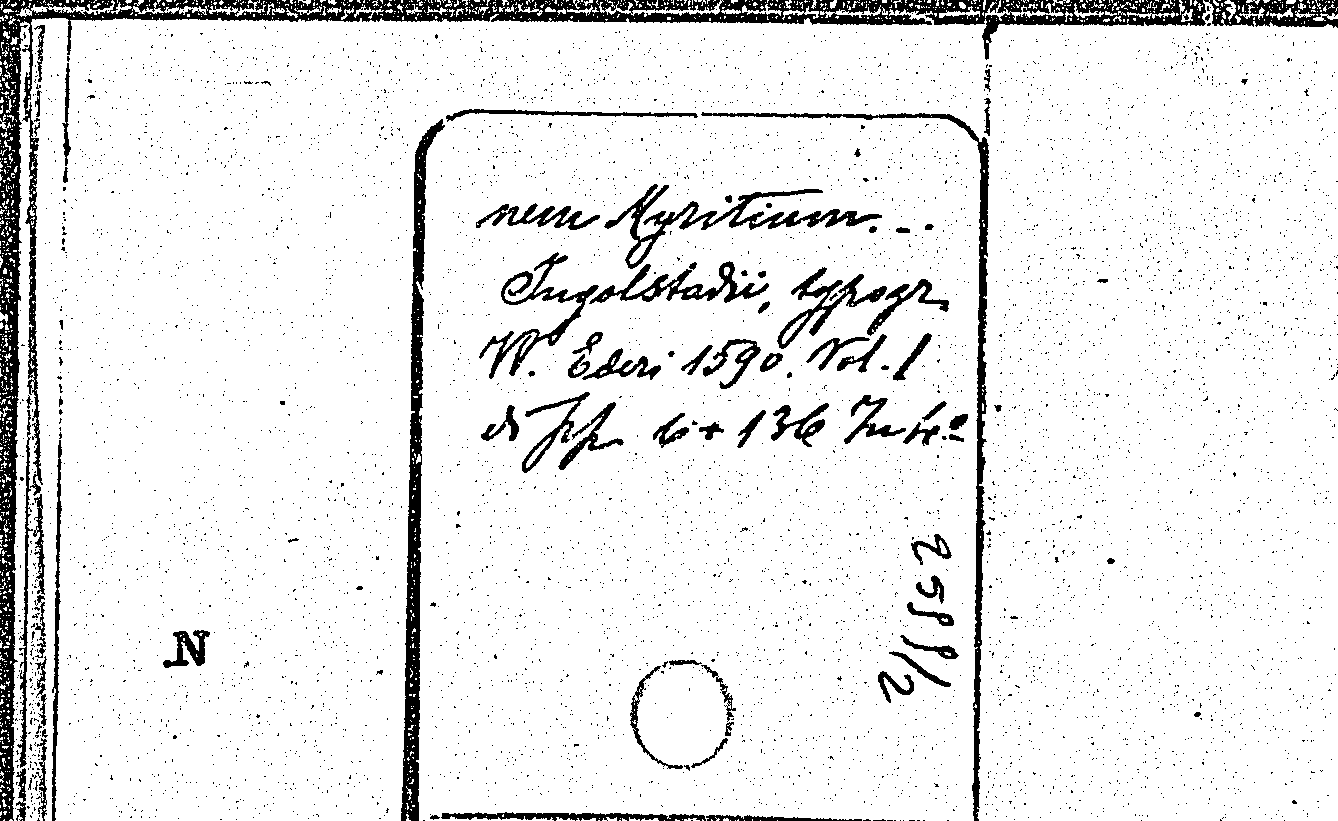 nem Myritium...
Ingolstadii, typogr.
W. Ederi 1590. Vol. 1
ds pp 6 + 136 In 4.º
2588/2
N